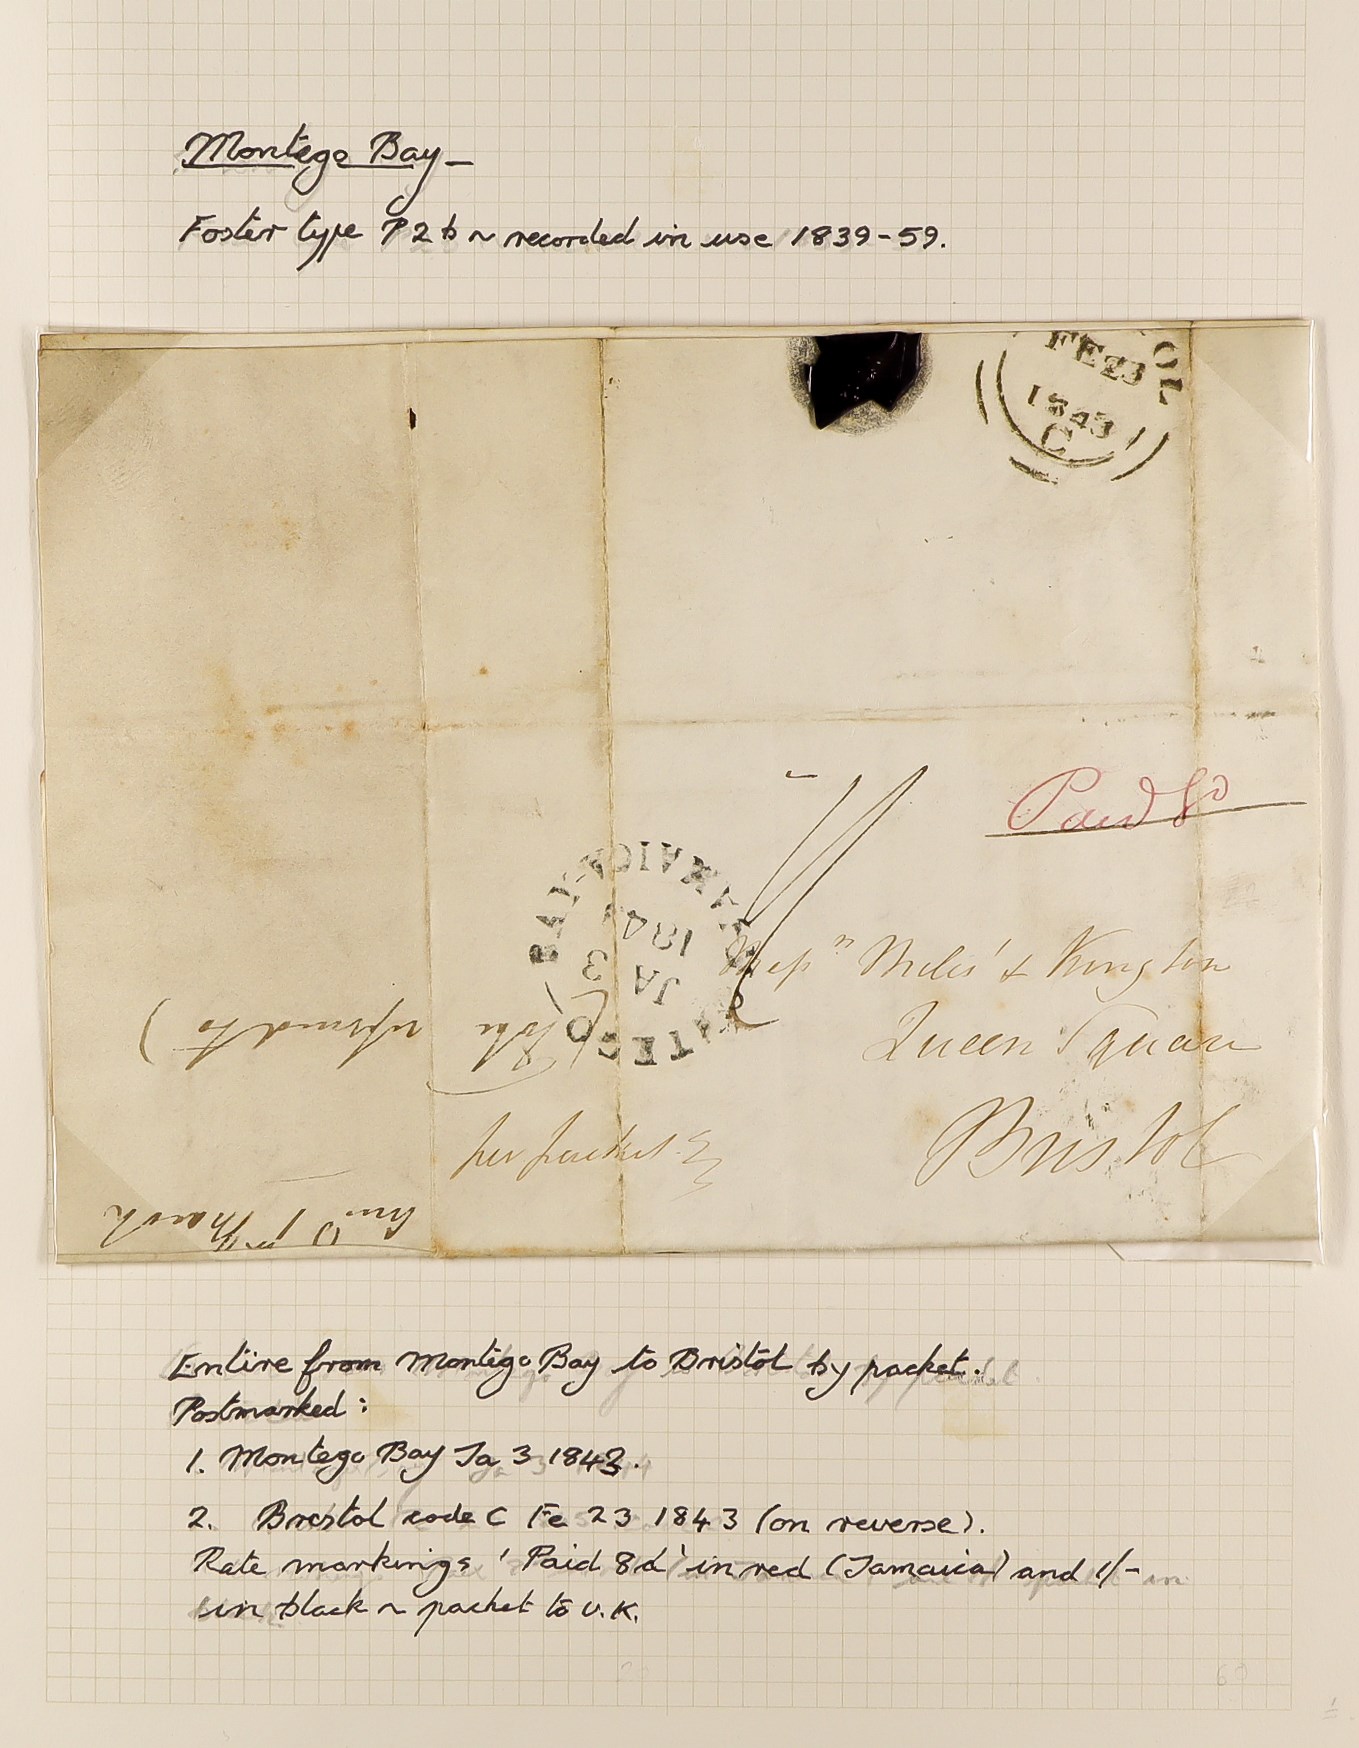 Montego Bay –
Foster type P2b ~ recorded in use 1839-59.
OL
FE 23
1843
C
Paid 8d
1/-
MONTEGO BAY-JAMAICA
JA 3
184
Messrs Miles & Kington
Queen Square
Bristol
per packet
(To be
referred to)
March
Entire from Montego Bay to Bristol by packet.
Postmarked :
1. Montego Bay Ja 3 1843.
2. Bristol code C Fe 23 1843 (on reverse).
Rate markings 'Paid 8d' in red (Jamaica) and 1/-
in black ~ packet to U.K.